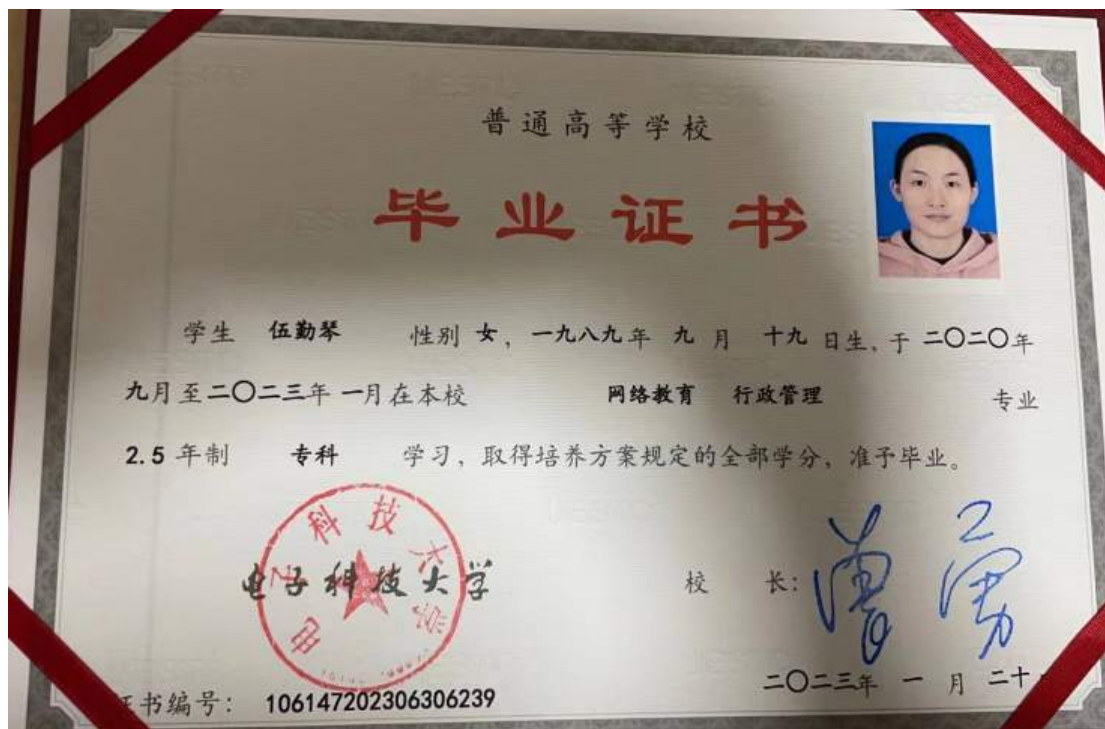 普通高等学校
毕业证书
学生 伍勤琴 性别 女，一九八九年 九 月 十九 日生，于 二〇二〇年
九月至二〇二三年 一月在本校 网络教育 行政管理 专业
2.5 年制 专科 学习，取得培养方案规定的全部学分，准予毕业。
电子科技大学
电子科技大学
校 长：曾勇
二〇二三年 一 月 二十
书编号： 106147202306306239